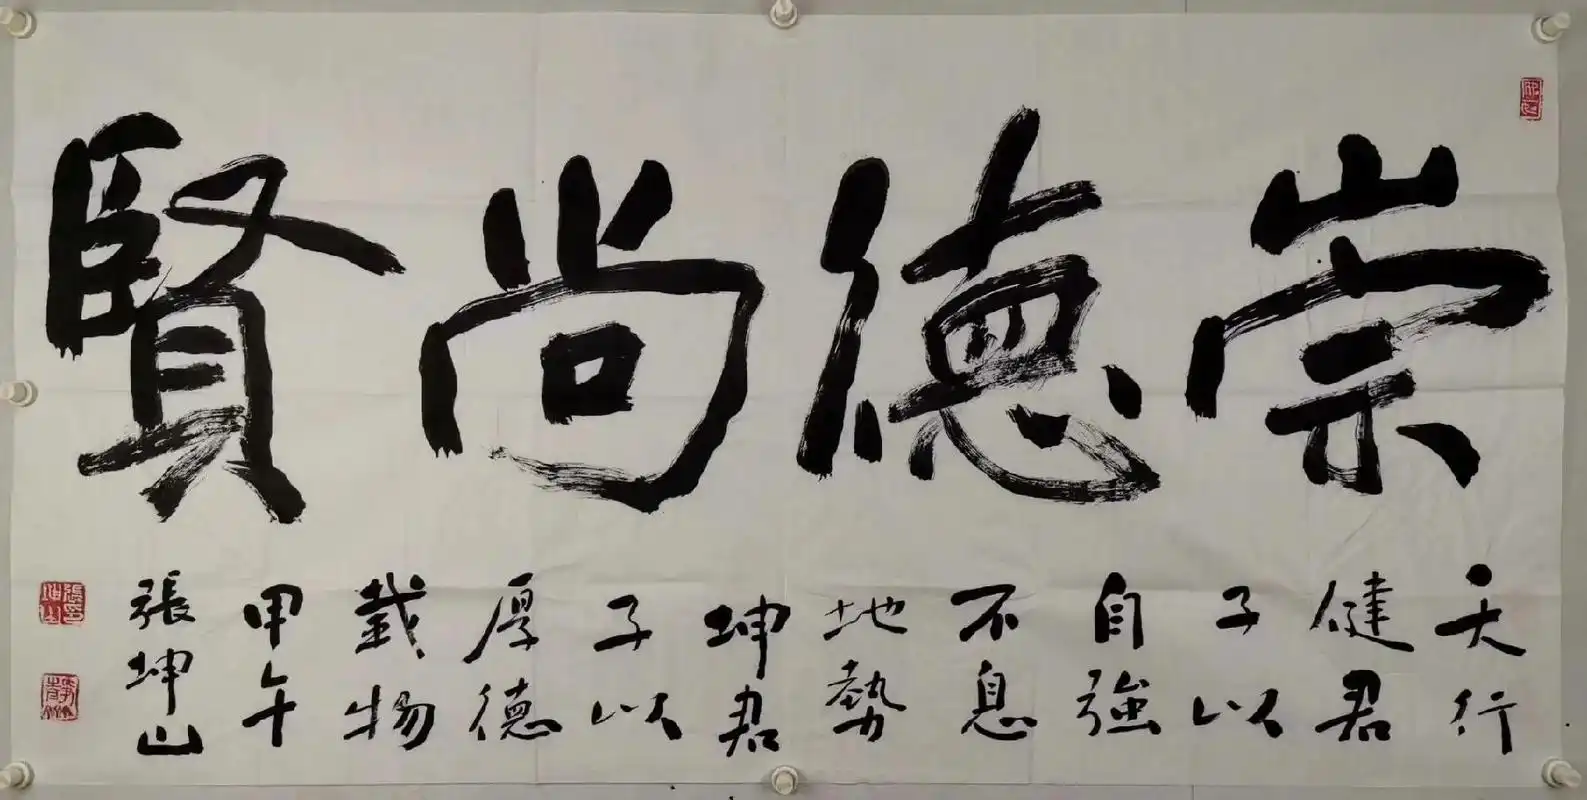 崇德尚賢
天行
健君
子以
自強
不息
地勢
坤君
子以
厚德
載物
甲午
張坤山